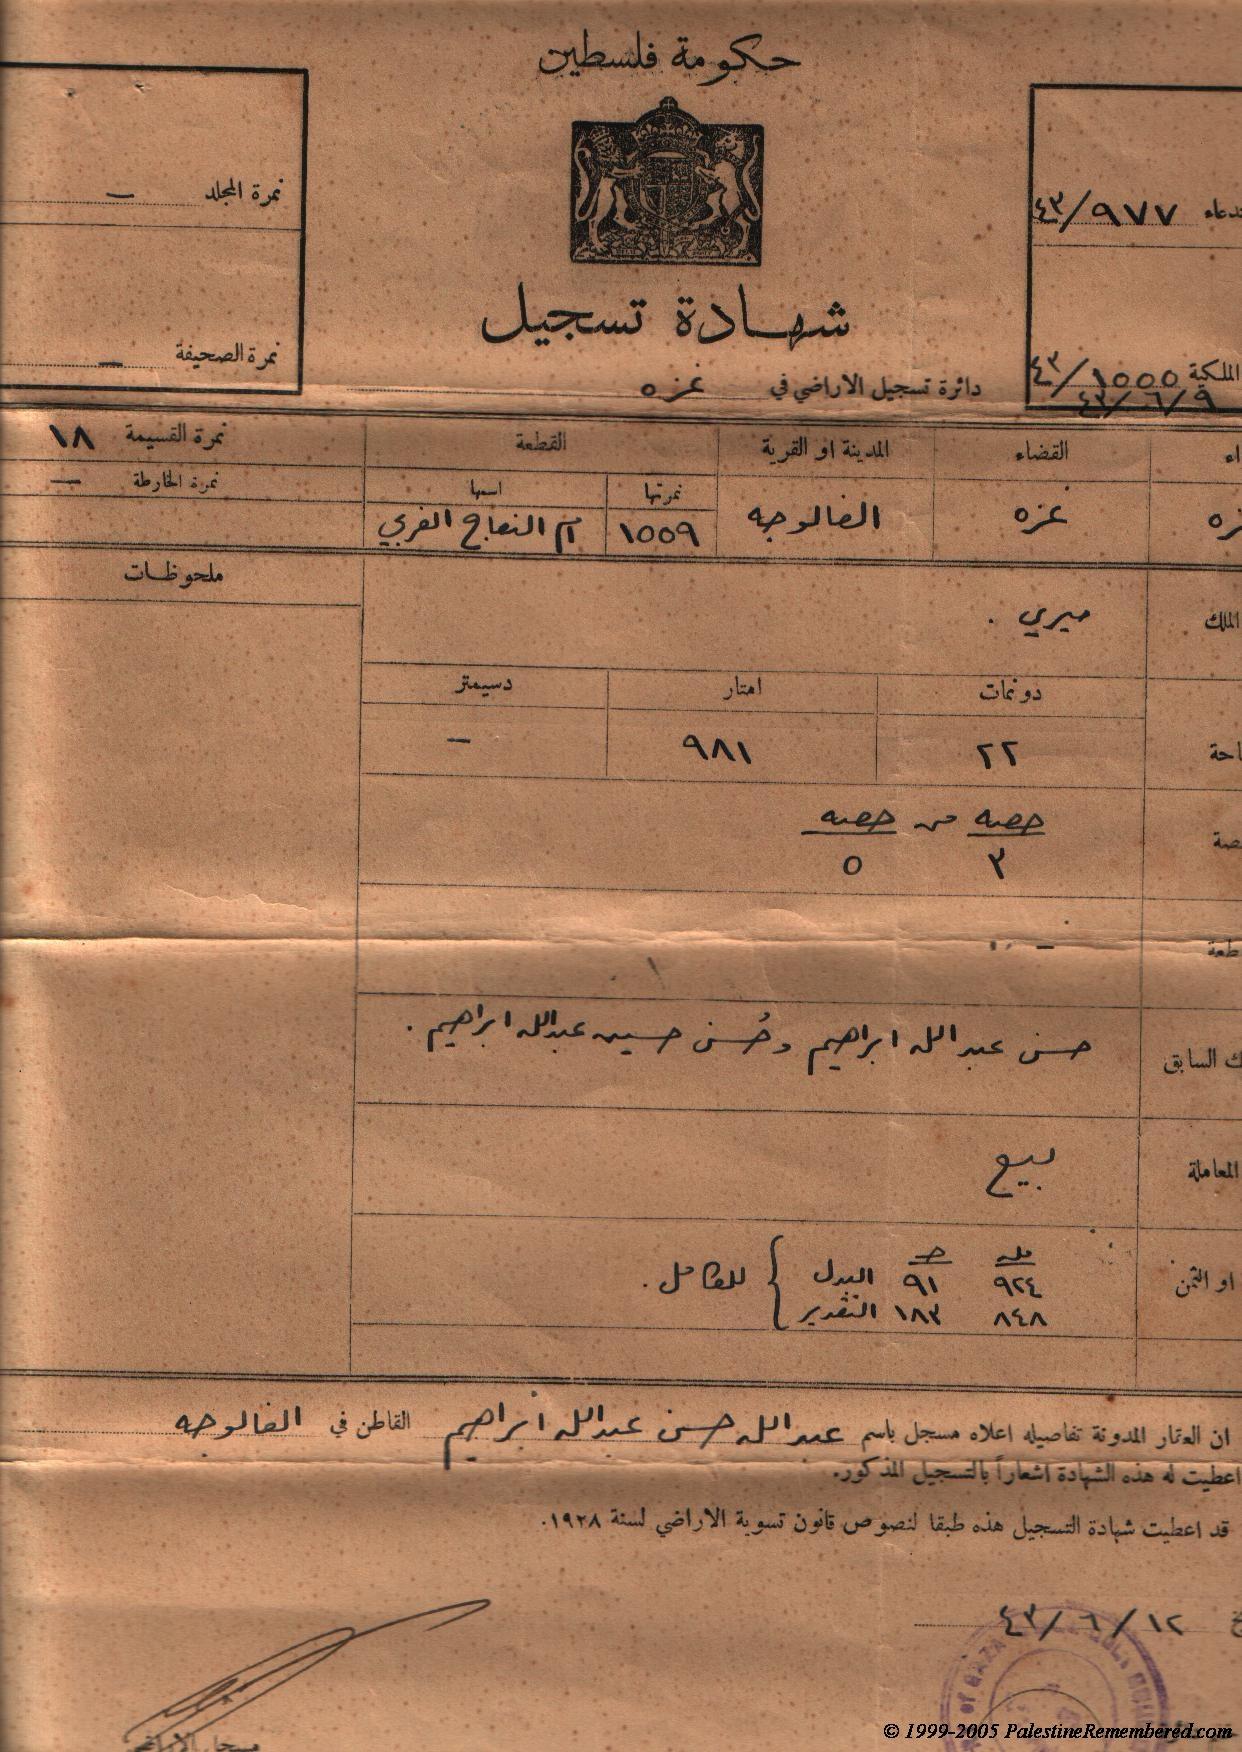 حكومة فلسطين
نمرة المجلد —
٩٧٧/٤٣
شهادة تسجيل
نمرة الصحيفة —
الملكية ١٥٥٥/٤٣
٩/٦/٤٣
دائرة تسجيل الاراضي في غزه
القضاء
المدينة او القرية
القطعة
نمرة القسيمة ١٨
نمرتها
اسمها
نمرة الخارطة —
غزه
الفالوجه
١٥٥٩
ام النعاج الغربي
ملحوظات
الملك
ميري .
دونمات
امتار
دسيمتر
٢٢
٩٨١
—
حصه من حصه
٣ ٥
السابق
حسن عبد الله ابراهيم وحُسن حسين عبدالله ابراهيم .
المعاملة
بيع
او الثمن
مل ج
٩٢٤ ٩١ البدل
٨٤٨ ١٨٣ التقدير
للكامل .
ان العقار المدونة تفاصيله اعلاه مسجل باسم عبد الله حسن عبدالله ابراهيم القاطن في الفالوجه
اعطيت له هذه الشهادة اشعاراً بالتسجيل المذكور.
قد اعطيت شهادة التسجيل هذه طبقا لنصوص قانون تسوية الاراضي لسنة ١٩٢٨.
١٢/٦/٤٣
of GAZA
مسجل الاراضي
© 1999-2005 PalestineRemembered.com